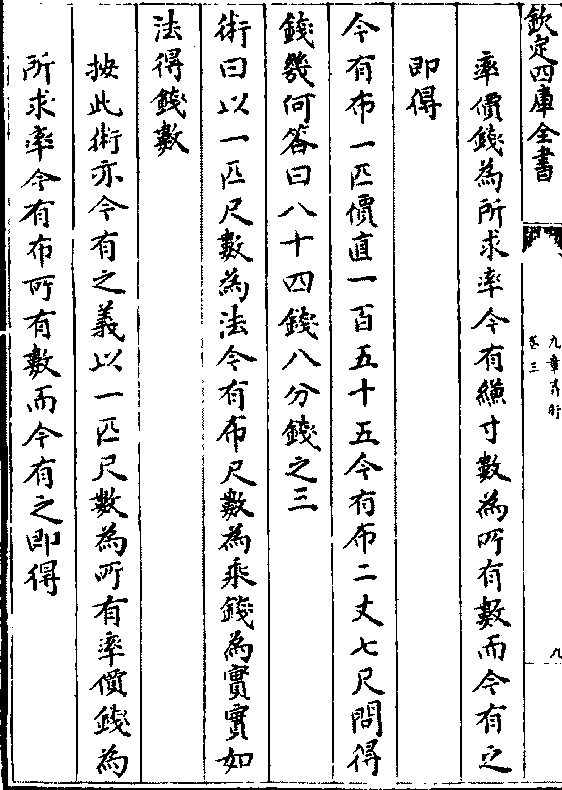 欽定四庫全書
九章算術
卷三
九
率價錢為所求率今有縑寸數為所有數而今有之
即得
今有布一匹價直一百五十五今有布二丈七尺問得
錢幾何答曰八十四錢八分錢之三
術曰以一匹尺數為法今有布尺數為乘錢為實實如
法得錢數
按此術亦今有之義以一匹尺數為所有率價錢為
所求率今有布所有數而今有之即得